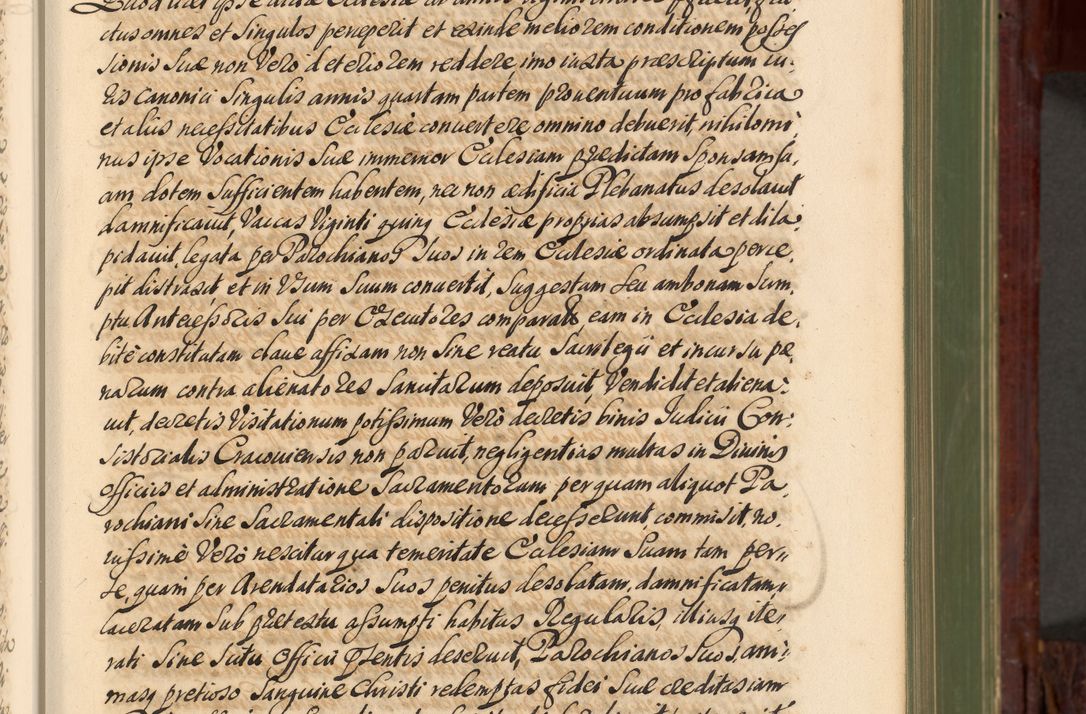 ctus omnes et Singulos perceperit et exinde meliorem conditionem posses
sionis Suæ non Vero deteriorem reddere, imo iuxta præscriptum iu,
ris Canonici Singulis annis quartam partem prouentuum pro fabrica
et aliis necessitatibus Ecclesiæ conuertere omnino debuerit, nihilomi,
nus ipse Vocationis Suæ immemor Ecclesiam prædictam Sponsam Su,
am dotem Sufficientem habentem, nec non ædificia Plebanatus desolauit
damnificauit, Vaccas Viginti quinq Ecclesiæ proprias absumpsit et dila,
pidauit, legata per Parochianos Suos in rem Ecclesiæ ordinata perce,
pit distraxit et in Vsum Suum conuertit, Suggestam Seu ambonam Sum,
ptu Antecessoris Sui per Executores comparatã, eam in Ecclesia de,
bitè constitutam claue affixam non Sine reatu Sacrilegii et incursu pæ,
narum contra alienatores Sanctarum deposuit, Vendidit et aliena,
uit, decretis Visitationum potissimum Verò decretis binis Iudicii Con,
sistorialis Cracouiensis non paruit, negligentias multas in Diuinis
officiis et administratione Sacramentorum per quam aliquot Pa,
rochiani Sine Sacramentali dispositione decesserunt, commisit, no,
uissimè Verò nescitur qua temeritate Ecclesiam Suam tam per,
se, quam per Arendatarios Suos penitus desolatam, damnificatam,
laceratam Sub prætextu assumpti habitus Regularis, illiusq ite,
rati Sine Scitu Officii præsentis deseruit, Parochianos Suos, ani,
masq pretioso Sanguine Christi redemptas fidei Suæ creditas iam